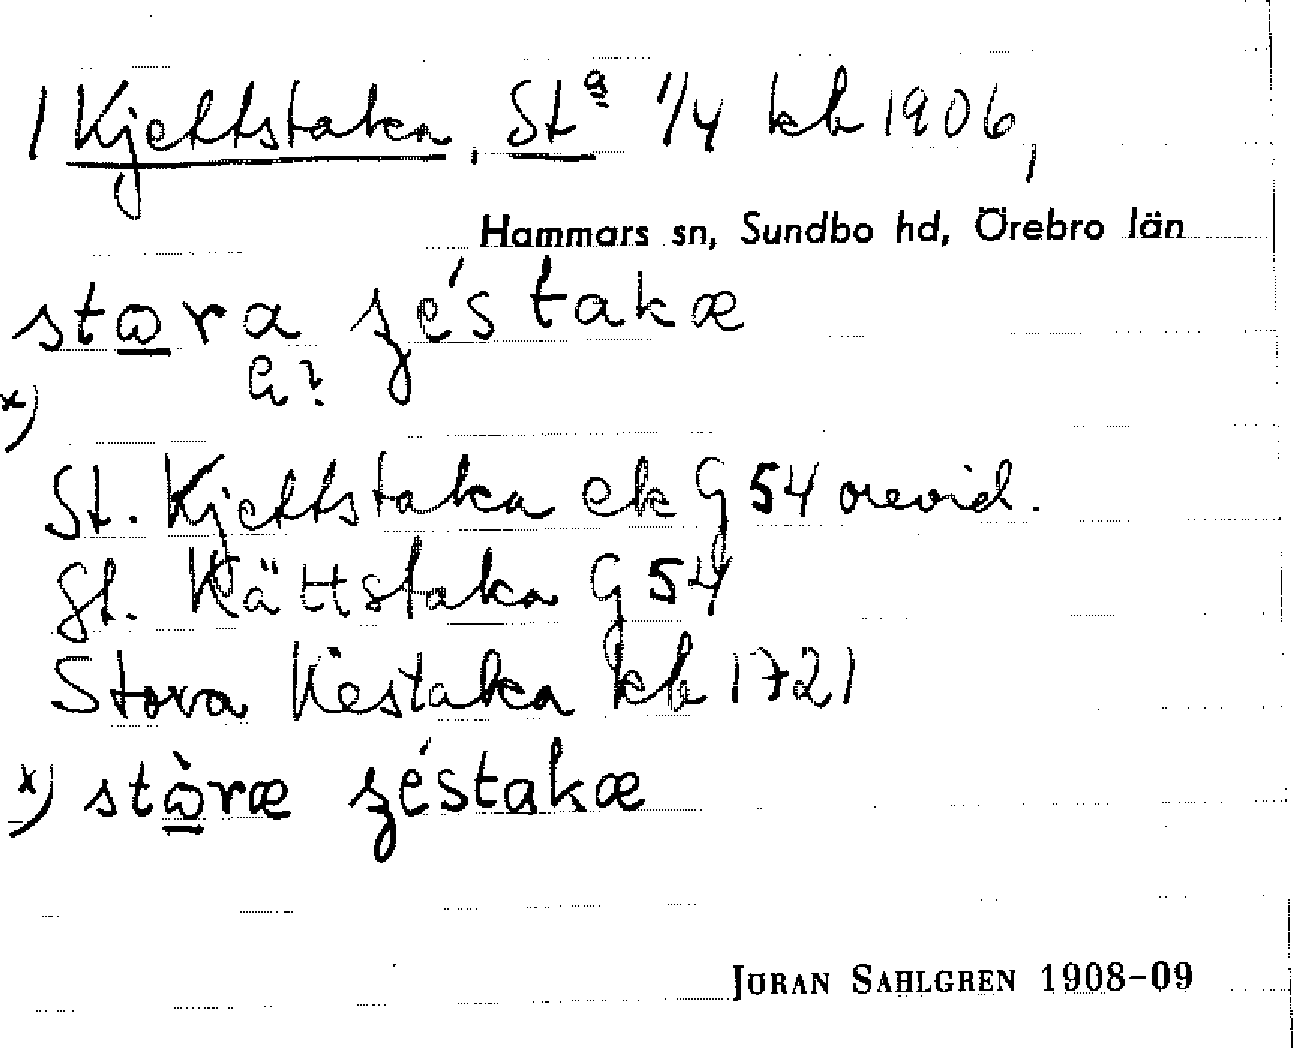 1 Kjettstaka, Stᵃ 1/4 kb 1906,
Hammars sn, Sundbo hd, Örebro län
stωra ʂéstakæ
a?
x)
St. Kjettstaka ek G 54 orevid.
St. Kättstaka G 54
Stora Kestaka kb 1721
x) stὼræ ʂéstakæ
JÖRAN SAHLGREN 1908-09